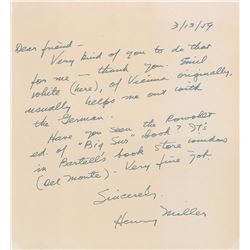 3/13/59
Dear friend -
Very kind of you to do that
for me — thank you. Emil
White (here), of Vienna originally,
usually helps me out with
the German.
Have you seen the Rowohlt
ed. of "Big Sur" book? It's
in Bartell's book store window
(Del Monte) - Very fine job.
Sincerely,
Henry Miller